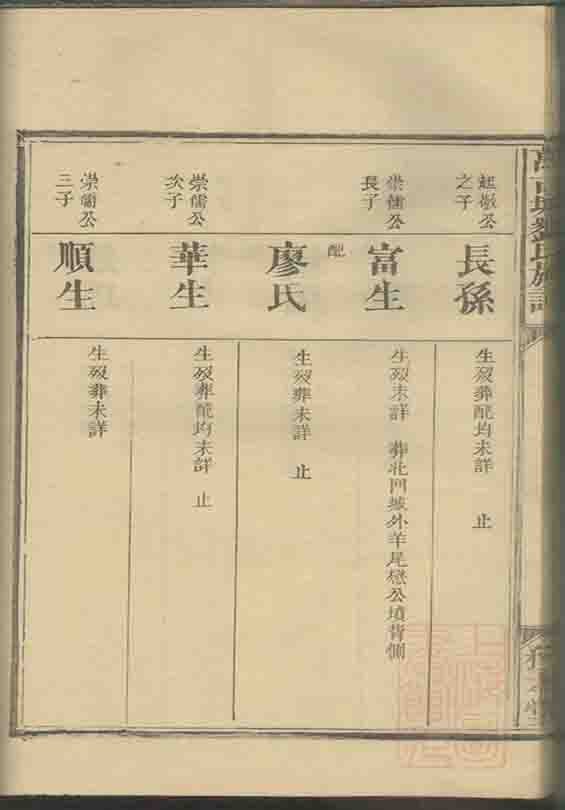 劉氏族譜
起敬公之子
長孫
生歿葬配均未詳 止
崇儒公長子
富生
生歿未詳 葬北門城外羊尾懋公墳背側
配
廖氏
生歿葬未詳 止
崇儒公次子
華生
生歿葬配均未詳 止
崇儒公三子
順生
生歿葬未詳